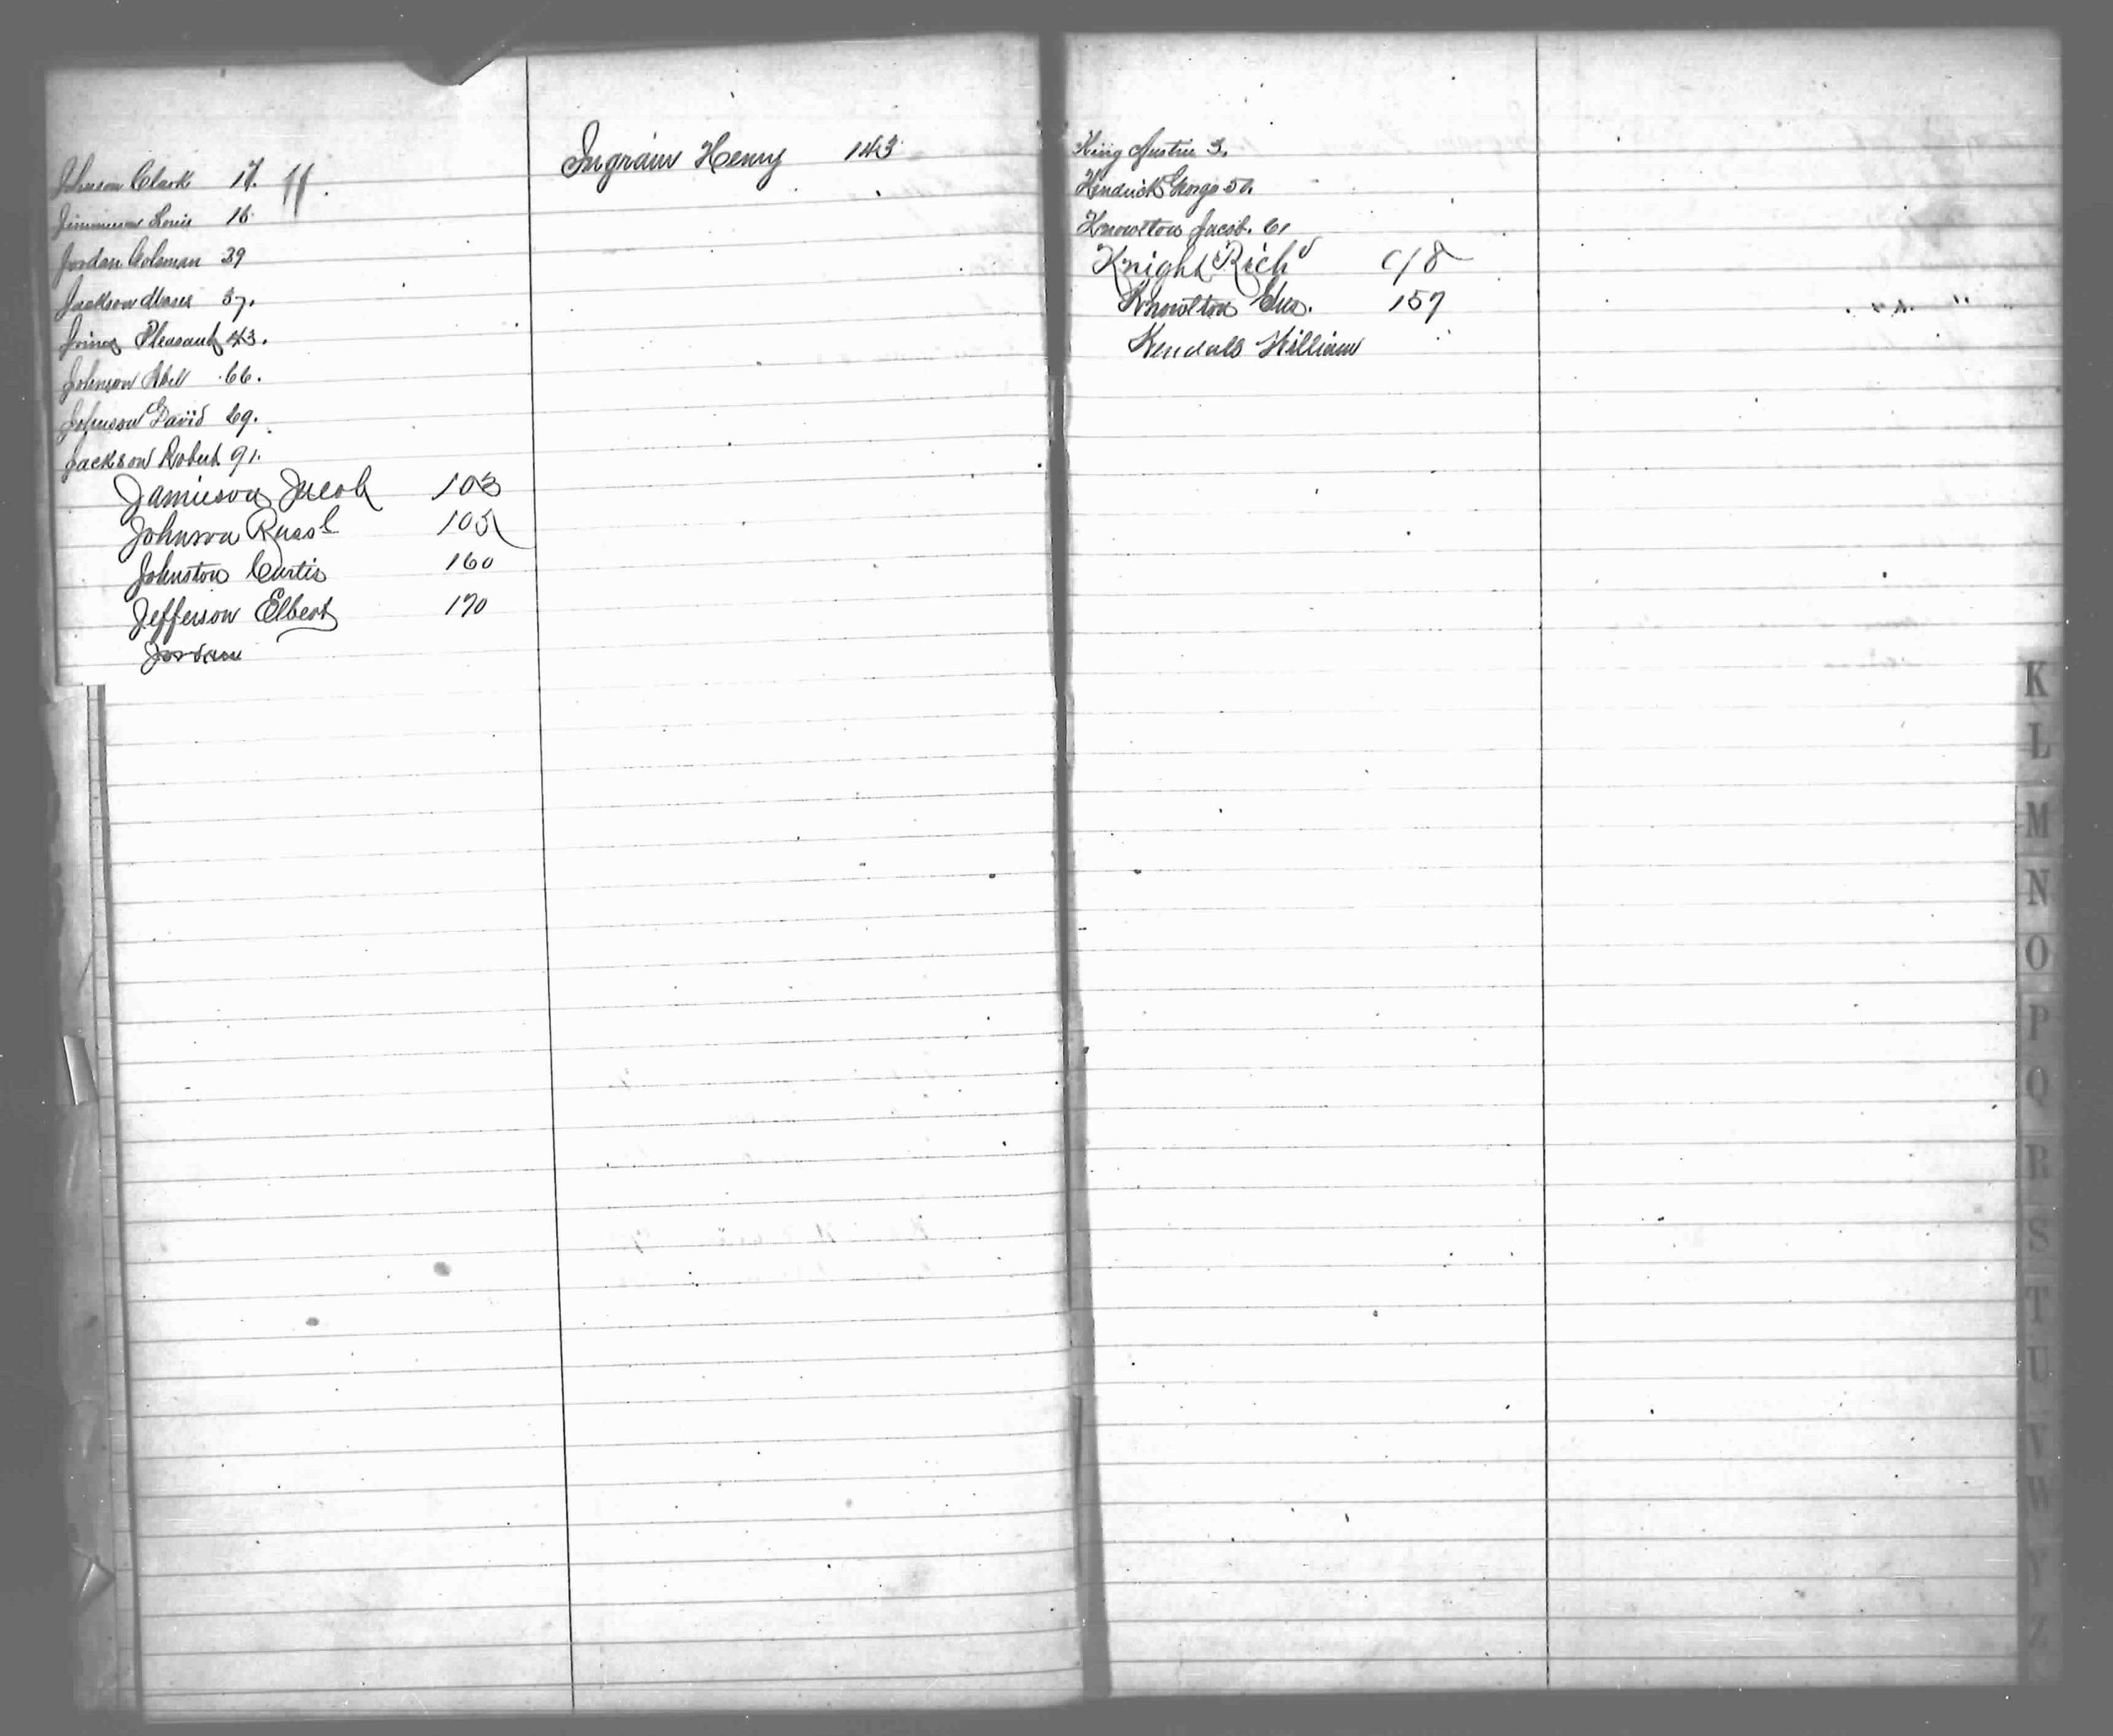 Johnson Clark 17. 11.
Jimmerson Louis 16
Jordan Coleman 39
Jackson Moses 37.
Joiner Pleasant 43.
Johnson Abel 66.
Johnson David 69.
Jackson Robert 91.
Jamieson Jacob 103
Johnson Russl 105
Johnston Curtis 160
Jefferson Elbert 170
Jordan
Ingram Henry 143
King Austin 3.
Kendrick George 50.
Knowlton Jacob. 61
Knight Richd 98
Knowlton Gus. 157
Kendall William
K
L
M
N
O
P
Q
R
S
T
U
V
W
Y
Z